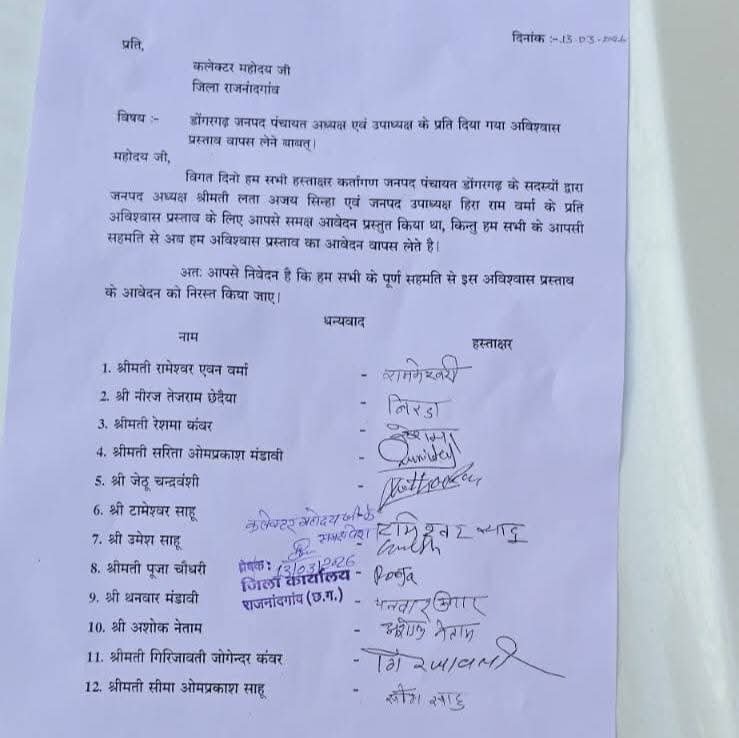 दिनांक :- 13-03-2026
प्रति,
कलेक्टर महोदय जी
जिला राजनांदगांव
विषय :- डोंगरगढ़ जनपद पंचायत अध्यक्ष एवं उपाध्यक्ष के प्रति दिया गया अविश्वास
प्रस्ताव वापस लेने बाबत्।
महोदय जी,
विगत दिनो हम सभी हस्ताक्षर कर्तागण जनपद पंचायत डोंगरगढ़ के सदस्यों द्वारा
जनपद अध्यक्ष श्रीमती लता अजय सिन्हा एवं जनपद उपाध्यक्ष हिरा राम वर्मा के प्रति
अविश्वास प्रस्ताव के लिए आपसे समक्ष आवेदन प्रस्तुत किया था, किन्तु हम सभी के आपसी
सहमति से अब हम अविश्वास प्रस्ताव का आवेदन वापस लेते है।
अतः आपसे निवेदन है कि हम सभी के पूर्ण सहमति से इस अविश्वास प्रस्ताव
के आवेदन को निरस्त किया जाए।
धन्यवाद
नाम हस्ताक्षर
1. श्रीमती रामेश्वर एवन वर्मा -
2. श्री नीरज तेजराम छेदैया - निरडा
3. श्रीमती रेशमा कंवर -
4. श्रीमती सरिता ओमप्रकाश मंडावी -
5. श्री जेठू चन्द्रवंशी -
6. श्री टामेश्वर साहू टामेश्वर साहू
7. श्री उमेश साहू
कलेक्टर महोदय जी के
समक्ष पेश
8. श्रीमती पूजा चौधरी - Pooja
प्रेषक: 13/03/2026
जिला कार्यालय
राजनांदगांव (छ.ग.)
9. श्री थनवार मंडावी -
10. श्री अशोक नेताम - अशोक नेताम
11. श्रीमती गिरिजावती जोगेन्दर कंवर -
12. श्रीमती सीमा ओमप्रकाश साहू - सीमा साहु